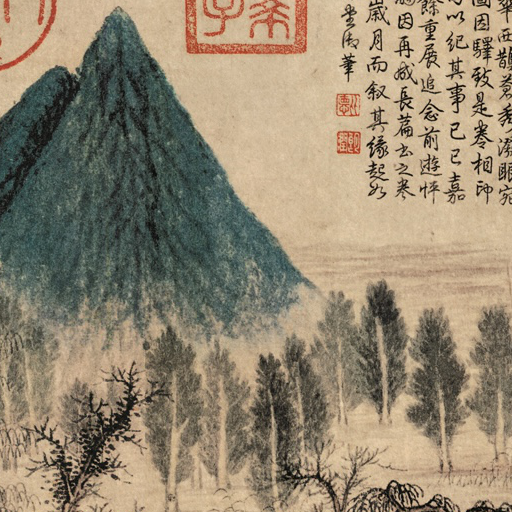 華西鵲蒼秀潑眼宛
圖因驛致是卷相印
可以紀其事己巳嘉
餘重展追念前遊怦
因再成長篇書之卷
歲月而叙其緣起
堂御筆